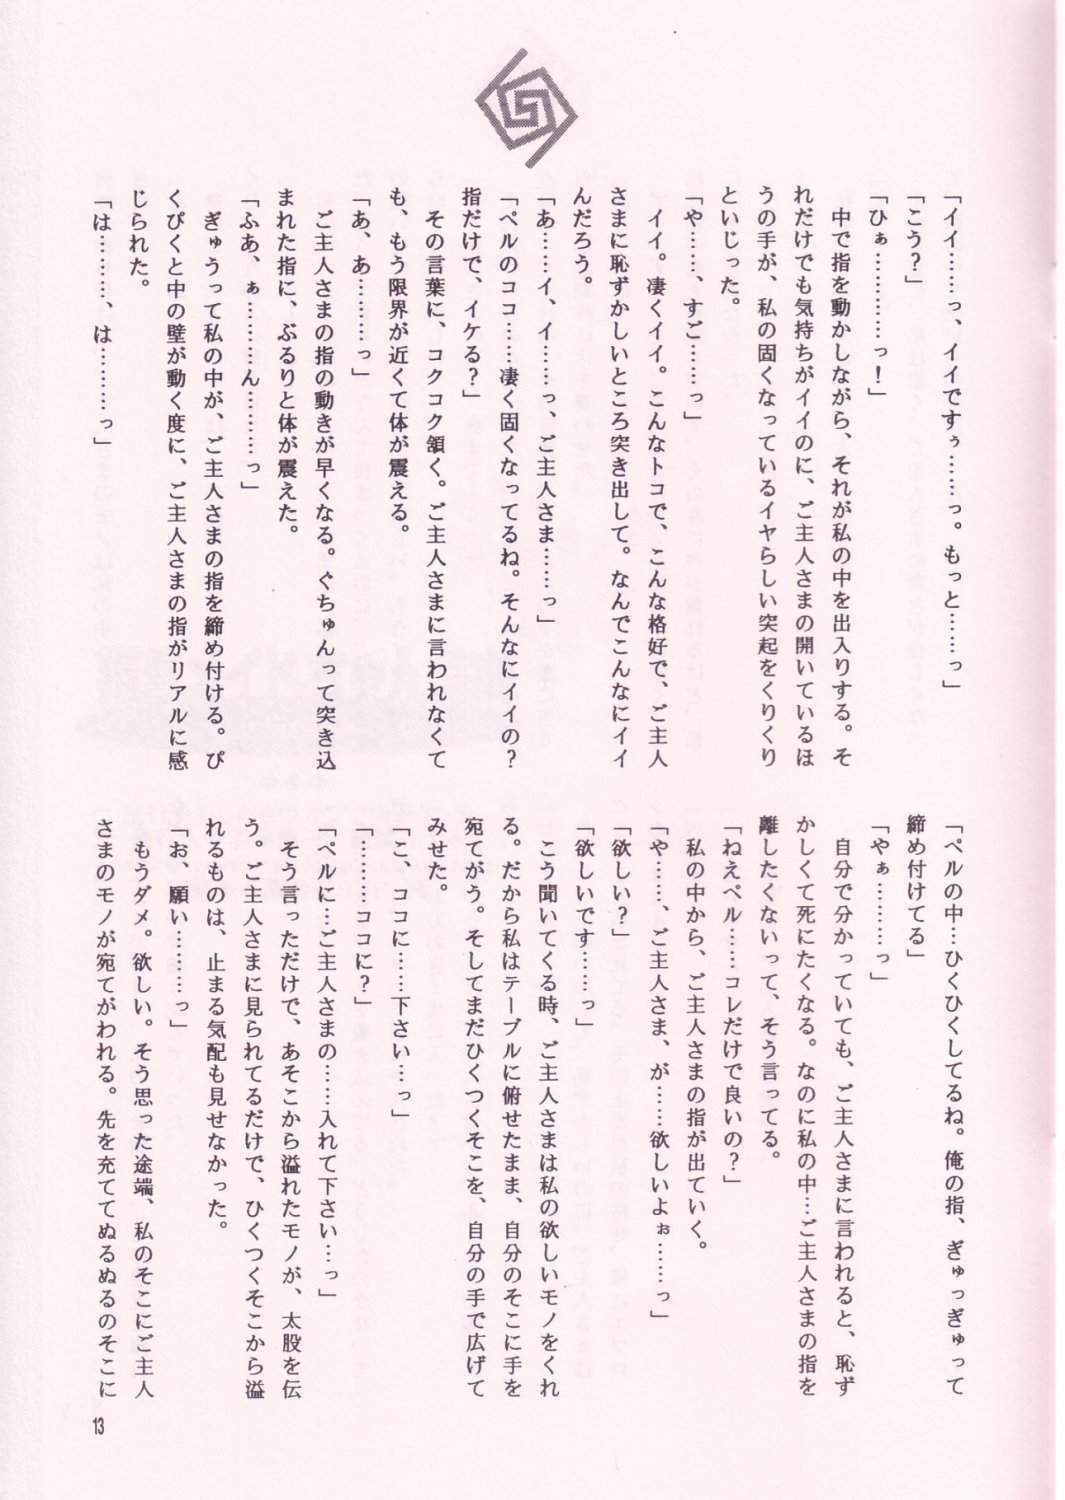 「イイ……っ、イイですぅ……っ。もっと……っ」
「こう?」
「ひぁ…………っ!」
中で指を動かしながら、それが私の中を出入りする。そ
れだけでも気持ちがイイのに、ご主人さまの開いているほ
うの手が、私の固くなっているイヤらしい突起をくりくり
といじった。
「や……、すご……っ」
イイ。凄くイイ。こんなトコで、こんな格好で、ご主人
さまに恥ずかしいところ突き出して。なんでこんなにイイ
んだろう。
「あ……イ、イ……っ、ご主人さま……っ」
「ペルのココ……凄く固くなってるね。そんなにイイの?
指だけで、イケる?」
その言葉に、コクコク頷く。ご主人さまに言われなくて
も、もう限界が近くて体が震える。
「あ、あ………っ」
ご主人さまの指の動きが早くなる。ぐちゅんって突き込
まれた指に、ぶるりと体が震えた。
「ふあ、ぁ………ん………っ」
ぎゅうって私の中が、ご主人さまの指を締め付ける。ぴ
くぴくと中の壁が動く度に、ご主人さまの指がリアルに感
じられた。
「は………、は………っ」
「ペルの中…ひくひくしてるね。俺の指、ぎゅっぎゅって
締め付けてる」
「やぁ………っ」
自分で分かっていても、ご主人さまに言われると、恥ず
かしくて死にたくなる。なのに私の中…ご主人さまの指を
離したくないって、そう言ってる。
「ねえペル……コレだけで良いの?」
私の中から、ご主人さまの指が出ていく。
「や……、ご主人さま、が……欲しいよぉ……っ」
「欲しい?」
「欲しいです……っ」
こう聞いてくる時、ご主人さまは私の欲しいモノをくれ
る。だから私はテーブルに俯せたまま、自分のそこに手を
宛てがう。そしてまだひくつくそこを、自分の手で広げて
みせた。
「こ、ココに……下さい…っ」
「………ココに?」
「ペルに…ご主人さまの……入れて下さい…っ」
そう言っただけで、あそこから溢れたモノが、太股を伝
う。ご主人さまに見られてるだけで、ひくつくそこから溢
れるものは、止まる気配も見せなかった。
「お、願い………っ」
もうダメ。欲しい。そう思った途端、私のそこにご主人
さまのモノが宛てがわれる。先を充ててぬるぬるのそこに
13